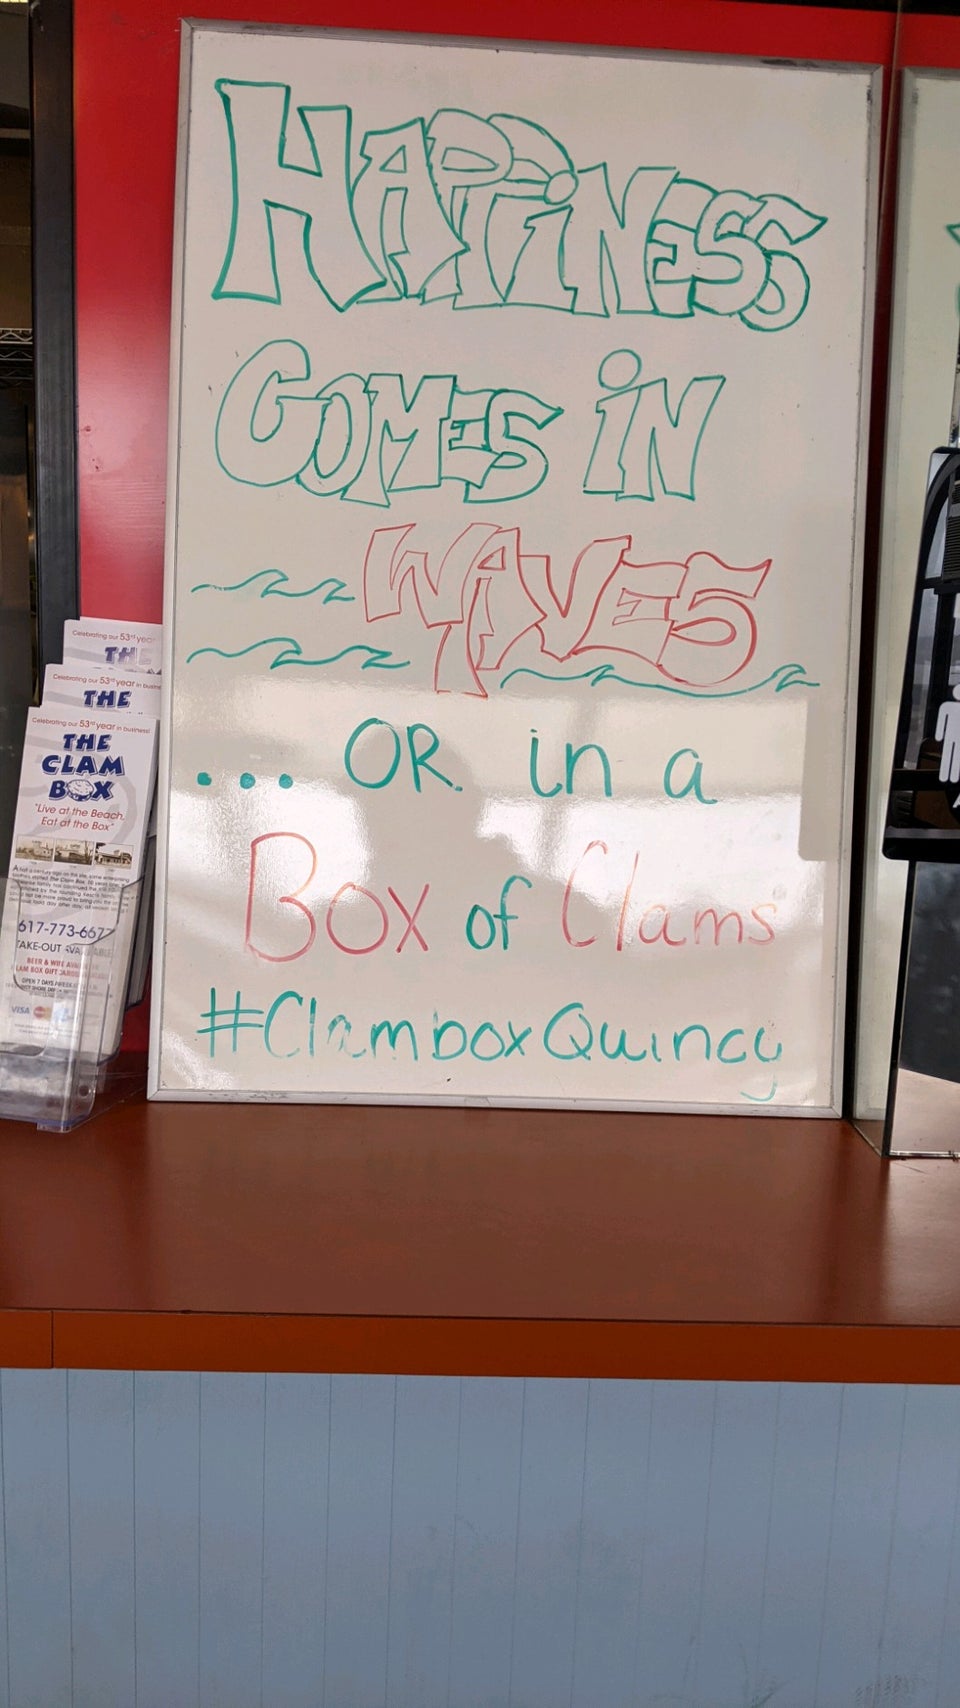 HAPPiNESS
COMES iN
WAVES
... OR in a
Box of Clams
#ClamboxQuincy
Celebrating our 53rd year
TH
Celebrating our 53rd year in busine
THE
Celebrating our 53rd year in business!
THE
CLAM
BOX
"Live at the Beach,
Eat at the Box"
617-773-6677
TAKE-OUT AVAILABLE
BEER & WINE AVAI
CLAM BOX GIFT CARDS
OPEN 7 DAYS A WEEK
VISA